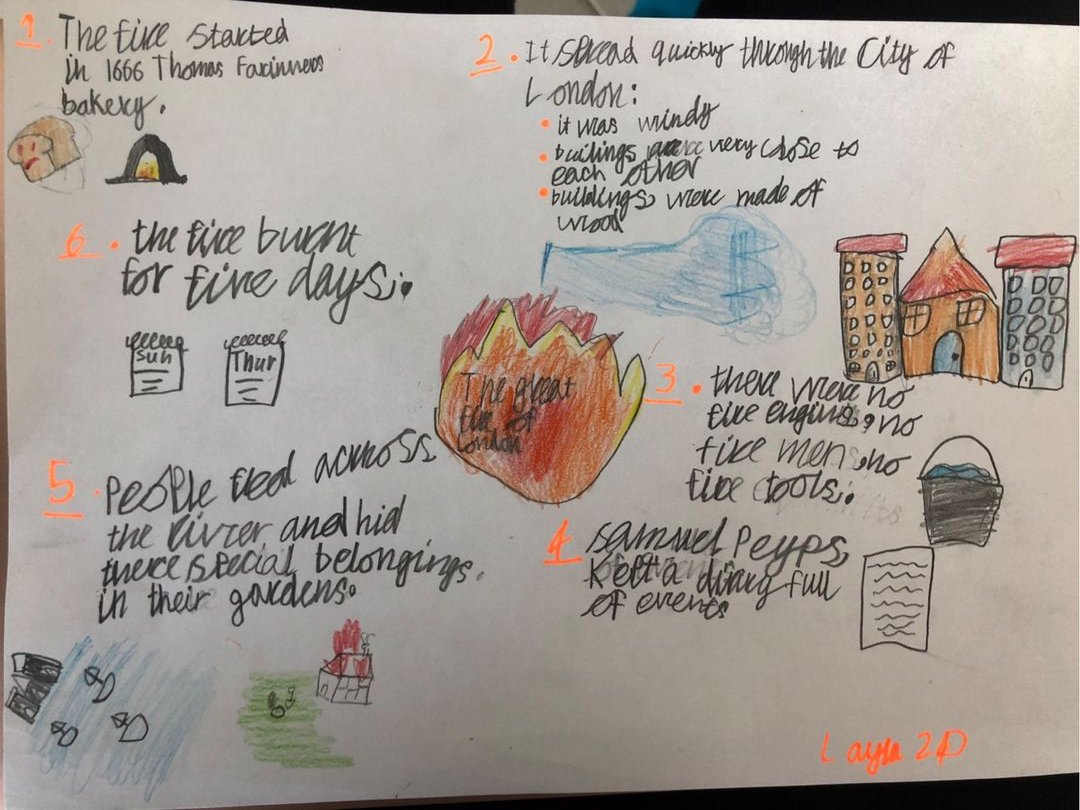 1. The fire started
in 1666 Thomas Farinners
bakery.
2. It spread quickly through the City of
London:
• it was windy
• builings were very close to
each other
• buildings were made of
wood
3. there were no
fire engins, no
fire men, no
fire tools.
4 samuel Peyps,
Kept a diary full
of events
5. People fled across
the river and hid
there special belongings.
in their gardens.
6. the fire burnt
for five days.
Sun
Thur
The great
fire of
London
Layla 2D